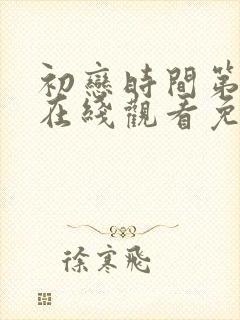 初戀時間第
在綫觀看免
徐寒飛